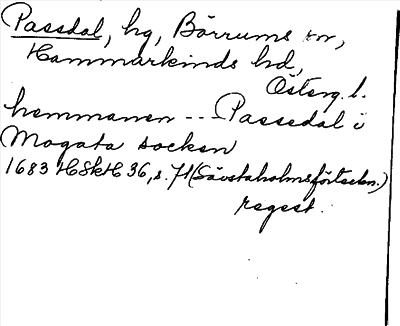 Passdal, hg, Börrums sn,
Hammarkinds hd,
Österg. l.
hemmanen --- Passedal i
Mogata socken
1683 HSkH 36, s. 71 (Sävstaholmsförteckn.)
regest.